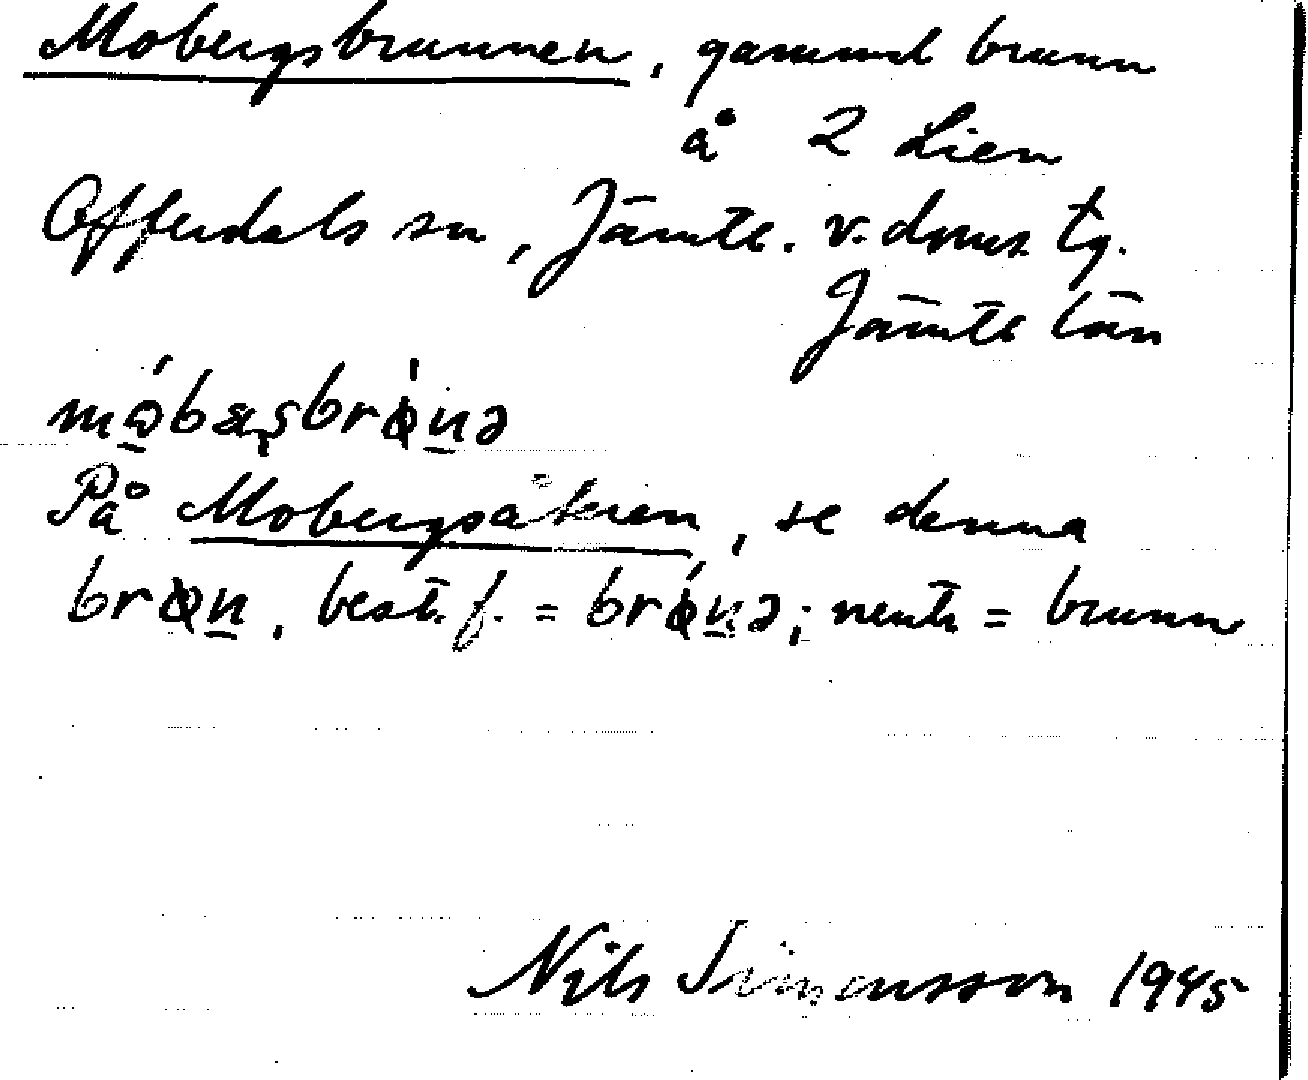 Mobergsbrunnen, gammal brunn
å 2 Lien
Offerdals sn, Jämtl. v. doms. tg.
Jämtl. län
På Mobergsåkren, se denna
best. f. = ; neutr. = brunn
Nils Simonsson 1945